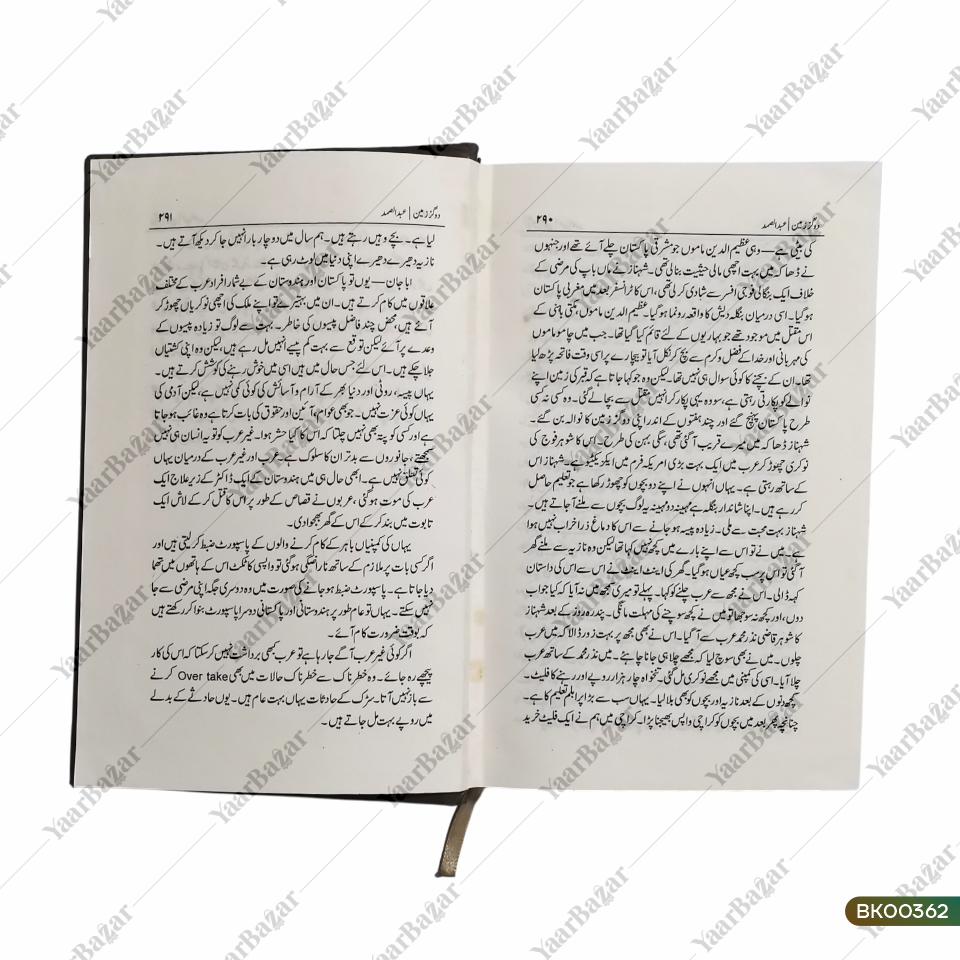 دو گز زمین | عبدالصمد ۲۹۰
کی بیٹی ہے — وہی عظیم الدین ماموں جو مشرقی پاکستان چلے آئے تھے اور جنہوں
نے ڈھاکہ میں بہت اچھی مالی حیثیت بنالی تھی۔ شہناز نے ماں باپ کی مرضی کے
خلاف ایک بنگالی فوجی افسر سے شادی کر لی تھی، اس کا ٹرانسفر بعد میں مغربی پاکستان
ہو گیا۔ اسی درمیان بنگلہ دیش کا واقعہ رونما ہو گیا۔ عظیم الدین ماموں، مکتی باہنی کے
اس مقتل میں موجود تھے جو بہاریوں کے لئے قائم کیا گیا تھا۔ جب میں چامو ماموں
کی مہربانی اور خدا کے فضل و کرم سے بچ کر نکل آیا تو بیچارے پر اسی وقت فاتحہ پڑھ لیا
تھا۔ ان کے بچنے کا کوئی سوال ہی نہیں تھا۔ لیکن وہ جو کہا جاتا ہے کہ قبر کی زمین اپنے
نوالے کو پکارتی رہتی ہے، سو وہ یہی پکار کر انہیں مقتل سے بچا لے گئی۔ وہ کسی نہ کسی
طرح پاکستان پہنچ گئے اور چند ہفتوں کے اندر اپنی دو گز زمین کا نوالہ بن گئے۔
شہناز ڈھاکہ میں میرے قریب آ گئی تھی، سگی بہن کی طرح۔ اس کا شوہر فوج کی
نوکری چھوڑ کر عرب میں ایک بہت بڑی امریکہ فرم میں ایگزیکیٹیو ہے۔ شہناز اس
کے ساتھ رہتی ہے۔ یہاں انہوں نے اپنے دو بچوں کو چھوڑ رکھا ہے جو تعلیم حاصل
کر رہے ہیں۔ اپنا شاندار بنگلہ ہے مہینہ دو مہینہ پہ لوگ بچوں سے ملنے آ جاتے ہیں۔
شہناز بہت محبت سے ملی۔ زیادہ پیسہ ہو جانے سے اس کا دماغ ذرا خراب نہیں ہوا
ہے۔ میں نے تو اس سے اپنے بارے میں کچھ نہیں کہا تھا لیکن وہ نازیہ سے ملنے گھر
آ گئی تو اس پر سب کچھ عیاں ہو گیا۔ گھر کی اینٹ اینٹ نے اس سے اس کی داستان
کہہ ڈالی۔ اس نے مجھ سے عرب چلنے کو کہا۔ پہلے تو میری سمجھ میں نہ آیا کہ کیا جواب
دوں، اور کچھ نہ سوجھا تو میں نے کچھ سوچنے کی مہلت مانگی۔ پندرہ روز کے بعد شہناز
کا شوہر قاضی نذر محمد عرب سے آ گیا۔ اس نے بھی مجھ پر بہت زور ڈالا کہ میں عرب
چلوں۔ میں نے بھی سوچ لیا کہ مجھے چلا ہی جانا چاہئے۔ میں نذر محمد کے ساتھ عرب
چلا آیا۔ اسی کی کمپنی میں مجھے نوکری مل گئی۔ تنخواہ چار ہزار روپے اور رہنے کا فلیٹ۔
کچھ دنوں کے بعد نازیہ اور بچوں کو بھی بلا لیا۔ یہاں سب سے بڑا پرابلم تعلیم کا ہے۔
چنانچہ پھر بعد میں بچوں کو کراچی واپس بھیجنا پڑا۔ کراچی میں ہم نے ایک فلیٹ خرید
دو گز زمین | عبدالصمد ۲۹۱
لیا ہے۔ بچے وہیں رہتے ہیں۔ ہم سال میں دو چار بار انہیں جا کر دیکھ آتے ہیں۔
نازیہ دھیرے دھیرے اپنی دنیا میں لوٹ رہی ہے۔
ابا جان — یوں تو پاکستان اور ہندوستان کے بے شمار افراد عرب کے مختلف
علاقوں میں کام کرتے ہیں۔ ان میں بہتیرے تو اپنے ملک کی اچھی نوکریاں چھوڑ کر
آئے ہیں، محض چند فاضل پیسوں کی خاطر۔ بہت سے لوگ تو زیادہ پیسوں کے
وعدے پر آئے لیکن توقع سے بہت کم پیسے انہیں مل رہے ہیں، لیکن وہ اپنی کشتیاں
جلا چکے ہیں۔ اس لئے جس حال میں ہیں اسی میں خوش رہنے کی کوشش کرتے ہیں۔
یہاں پیسہ، روٹی اور دنیا بھر کے آرام و آسائش کی کوئی کمی نہیں ہے، لیکن آدمی کی
یہاں کوئی عزت نہیں۔ جو بھی عوام، آئین اور حقوق کی بات کرتا ہے وہ غائب ہو جاتا
ہے اور کسی کو پتہ بھی نہیں چلتا کہ اس کا کیا حشر ہوا۔ غیر عرب کو تو یہ انسان ہی نہیں
سمجھتے، جانوروں سے بدتر ان کا سلوک ہے۔ عرب اور غیر عرب کے درمیان یہاں
کوئی تعلق نہیں ہے۔ ابھی حال ہی میں ہندوستان کے ایک ڈاکٹر کے زیر علاج ایک
عرب کی موت ہو گئی، عربوں نے قصاص کے طور پر اس کا قتل کر کے لاش ایک
تابوت میں بند کر کے اس کے گھر بھجوا دی۔
یہاں کی کمپنیاں باہر کے کام کرنے والوں کے پاسپورٹ ضبط کر لیتی ہیں اور
اگر کسی بات پر ملازم کے ساتھ ناراضگی ہو گئی تو واپسی کا ٹکٹ اس کے ہاتھوں میں تھما
دیا جاتا ہے۔ پاسپورٹ ضبط ہو جانے کی صورت میں وہ دوسری جگہ اپنی مرضی سے جا
نہیں سکتے۔ یہاں تو عام طور پر ہندوستانی اور پاکستانی دوسرا پاسپورٹ بنوا کر رکھتے ہیں
کہ بوقت ضرورت کام آئے۔
اگر کوئی غیر عرب آگے جا رہا ہے تو عرب کبھی برداشت نہیں کر سکتا کہ اس کی کار
پیچھے رہ جائے۔ وہ خطرناک سے خطرناک حالات میں بھی Over take کرنے
سے باز نہیں آتا۔ سڑک کے حادثات یہاں بہت عام ہیں۔ یوں حادثے کے بدلے
میں روپے بہت مل جاتے ہیں۔
YaarBazar
BK00362